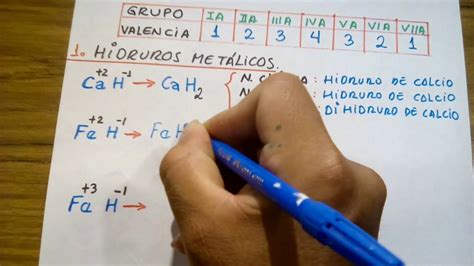 GRUPO IA IIA IIIA IVA VA VIA VIIA
VALENCIA 1 2 3 4 3 2 1
1. HiDRUROS METÁLICOS.
+2 -1
Ca H → CaH2 { N. : HiDRURO DE CALCIO
N. : HiDRURO DE CALCIO
: DiHIDRURO DE CALCIO
+2 -1
Fe H → FeH
+3 -1
Fe H →